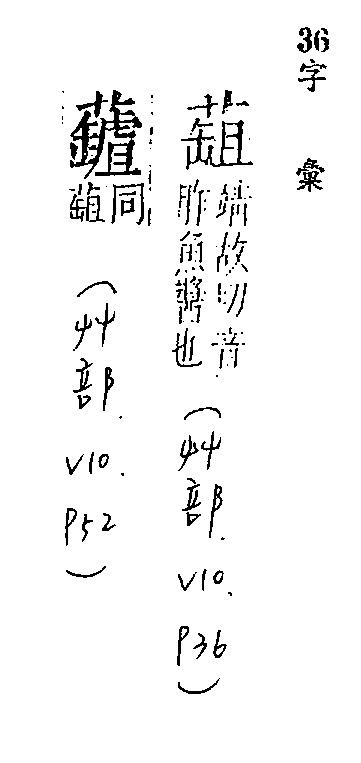 36字彙
靖故切音
胙魚醬也
(艸部. V10. P36)
同
(艸部. V10. P52)